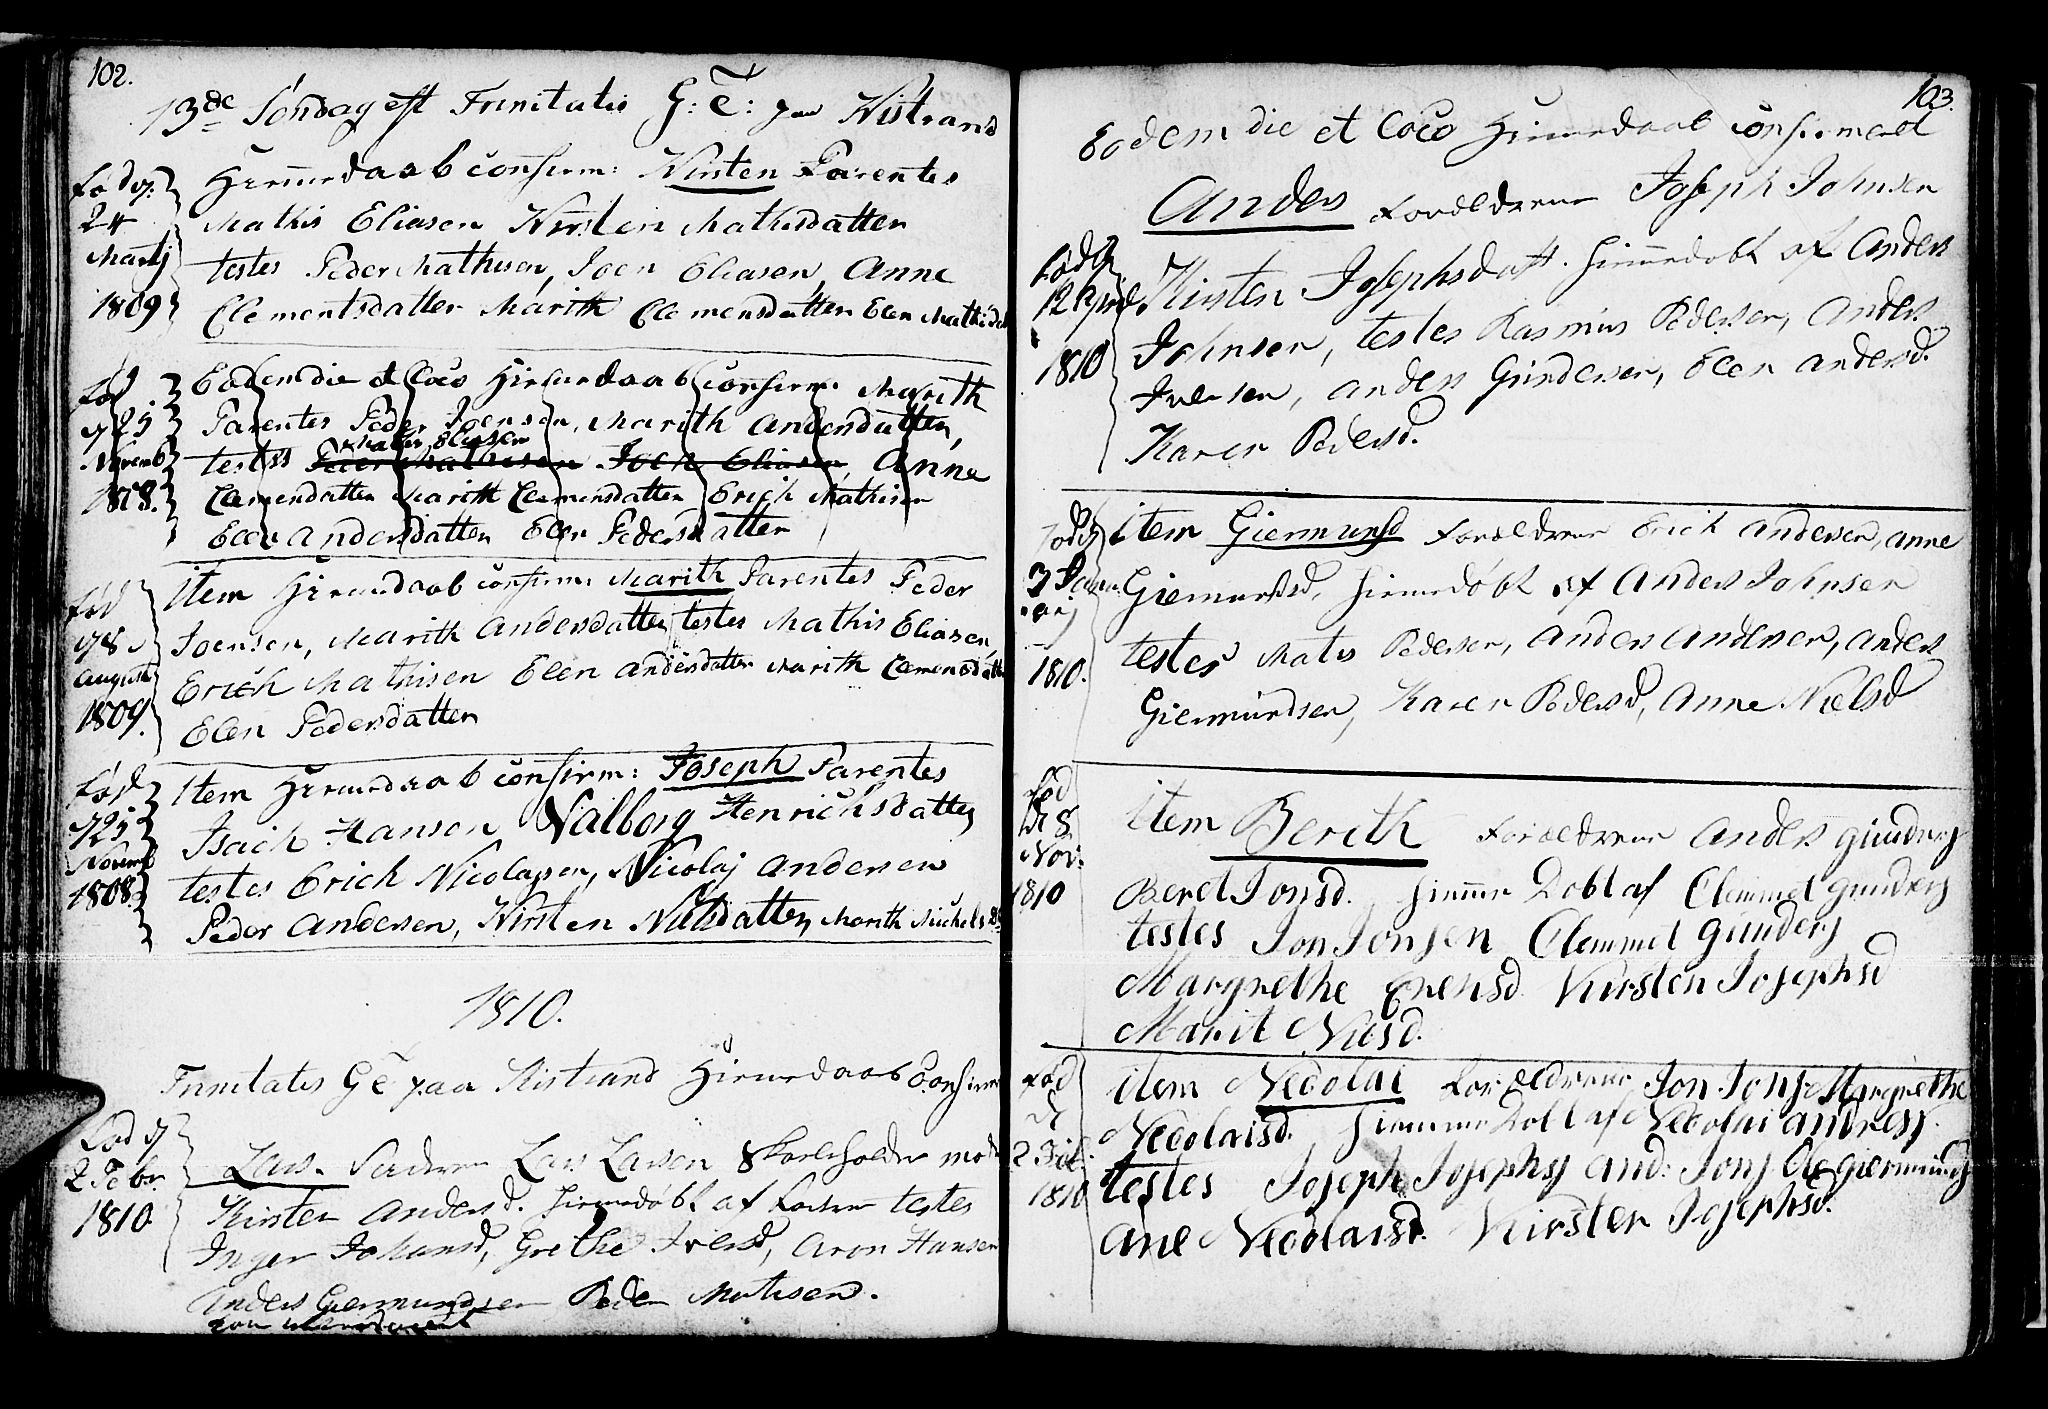 102.
13de Søndag eft Trinitatis G: T: paa Kistrand
fød d.
24
Martj
1809
Hiemedaab confirm: Kirsten Parentes
Mathis Eliasen Kirsten Mathisdatter
testes Peder Mathisen, Joen Eliasen, Anne
Clementsdatter Marith Clemensdatter Elen Mathisdatt
fød
d 25
Novemb
1808.
Eodem die et loco Hiemedaab confirm: Marith
Parentes Peder Joensen, Marith Andersdatter,
Mathis Eliasen
testes Peder Mathisen Joen Eliasen, Anne
Clemensdatter Marith Clemensdatter Erich Mathisen
Elen Andersdatter Elen Pedersdatter
fød
d 8
August
1809.
Item Hiemedaab confirm: Marith Parentes Peder
Joensen, Marith Andersdatter testes Mathis Eliasen,
Erich Mathisen Elen Andersdatter Marith Clemensdatt
Elen Pedersdatter
fød
d 25
Novemb
1808.
Item Hiemedaab confirm: Joseph Parentes
Isach Hansen Valborg Henrichsdatter
testes Erich Nicolaysen, Nicolaj Andersen
Peder Andersen, Kirsten Nilsdatter, Marith Michelsd
1810.
Trinitatis G T paa Kistrand Hiemedaab Confirm
fød d
2 Febr.
1810
Lars. Lars Larsen Skoleholder
Kirsten Andersd. hiemedøbt af testes
Inger Johansd, Grethe Iversd, Aron Hansen
Anders Giermundsen Peder Matisen.
103.
Eodem die et loco Hiemedaab confirmeret
Anders Forældrene Joseph Johnsen
fød d
12 April
1810
Kirsten Josephsdatt. hiemedøbt af Anders
Johnsen, testes Rasmus Pedersen, Anders
Iversen, Anders Gundersen, Elen Andersd.
Karen Pedersd.
fød d
3 Janu
arj
1810.
item Giermund Forældrene Erich Andersen, Anne
Giermundsd, hiemedøbt af Anders Johnsen
testes Matis Pedersen, Anders Andersen, Anders
Giermundsen, Karen Pedersd, Anne Nielsd
fød
d 8
Nov:
1810
item Berith Forældrene Anders gundersj
Beret Jonsd. hiemme Døbt af Clemmet gundersj
testes Jon Jonsen Clemmet gundersj
Margrethe Evensd. Kirsten Josephsd
Marit Nilsd.
fød
d
2 Feb.
1810
item Necolai Forældrene Jon Jonsj Margrethe
Necolaisd. hiemme Døbt af Necolai andresj.
testes Joseph Josephsj And: Jonsj Ole giermundsj
ane Necolaisd. Kirsten Josephsd.